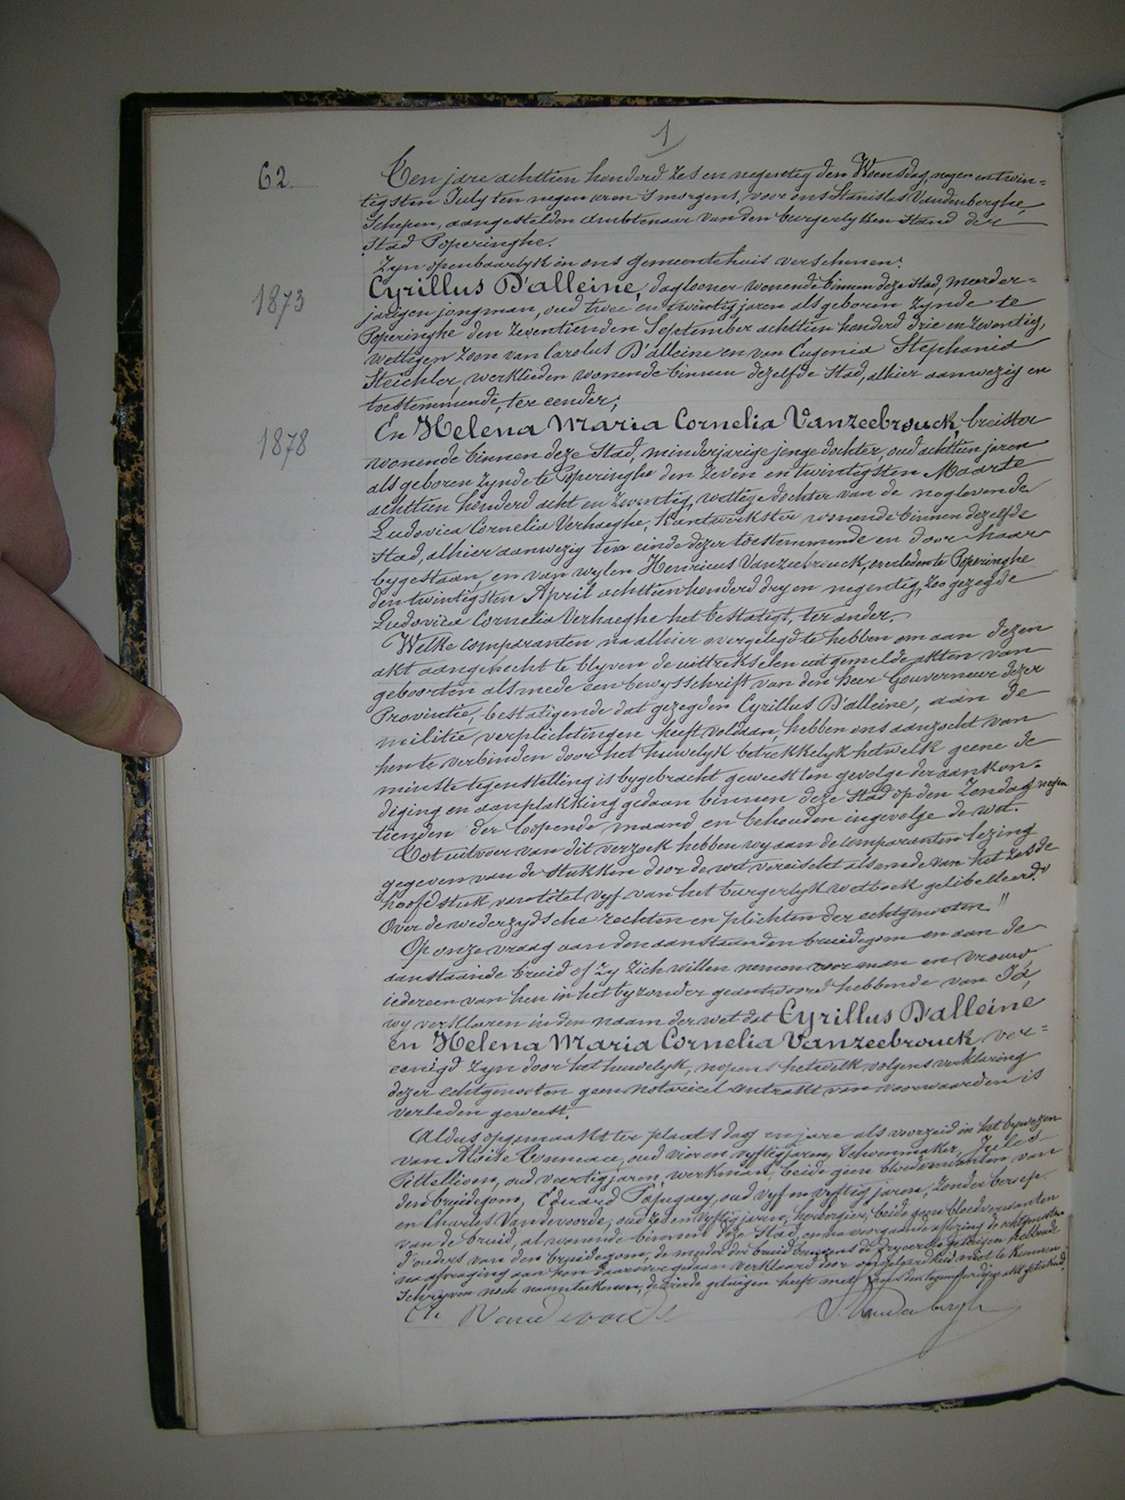 1
62
Ten jare achttien honderd zes en negentig den Woensdag negen en twin=
tigsten July ten negen uren 's morgens, voor ons Stanislas Vandenberghe,
Schepen, aangestelden Ambtenaar van den burgerlyken Stand der
Stad Poperinghe.
Zyn openbaarlyk in ons Gemeentehuis verschenen:
1873
Cyrillus D'alleine, daglooner wonende binnen deze Stad, meerder=
jarigen jongman, oud twee en twintig jaren als geboren zynde te
Poperinghe den zeventienden September achttien honderd drie en zeventig,
wettigen zoon van Carolus D'alleine en van Eugenia Stephania
Steichler, werklieden wonende binnen dezelfde Stad, alhier aanwezig en
toestemmende, ter eender;
1878
En Helena Maria Cornelia Vanzeebrouck, breister
wonende binnen deze Stad, minderjarige jonge dochter, oud achttien jaren
als geboren zynde te Poperinghe den zeven en twintigsten Maarte
achttien honderd acht en zeventig, wettige dochter van de noglevende
Ludovica Cornelia Verhaeghe, Kantwerkster wonende binnen dezelfde
Stad, alhier aanwezig ten einde dezer toestemmende en door haar
bygestaan, en van wylen Henricus Vanzeebrouck, overleden te Poperinghe
den twintigsten April achttien honderd dry en negentig, zoo gezegde
Ludovica Cornelia Verhaeghe het bestatigt, ter ander.
Welke comparanten na alhier overgelegd te hebben om aan dezen
akt aangehecht te blyven de uittrekselen uit gemelde akten van
geboorten alsmede een bewysschrift van den Heer Gouverneur dezer
Provintie, bestatigende dat gezegden Cyrillus D'alleine, aan de
militie verplichtingen heeft voldaan, hebben ons aanzocht van
hen te verbinden door het huwelyk betrekkelyk hetwelk geene de
minste tegenstelling is bygebracht geweest ten gevolge der aankon=
diging en aanplakking gedaan binnen deze Stad op den Zondag negen
tienden der loopende maand en behouden ingevolge de wet.
Tot uitvoer van dit verzoek hebben wy aan de comparanten lezing
gegeven van de stukken door de wet vereischt alsmede van het zesde
hoofdstuk van titel vyf van het burgerlyk wetboek gelibelleerd:"
Over de wederzydsche rechten en plichten der echtgenooten."
Op onze vraag aan den aanstaanden bruidegom en aan de
aanstaande bruid of zy zich willen nemen voor man en vrouw,
iedereen van hen in het byzonder geantwoord hebbende van Ja,
wy verklaren in den naam der wet dat Cyrillus D'alleine
en Helena Maria Cornelia Vanzeebrouck ver=
eenigd zyn door het huwelyk, nopens hetwelk volgens verklaring
dezer echtgenooten geen notarieel contrakt van voorwaarden is
verleden geweest.
Aldus opgemaakt ter plaats dag en jare als voorzeid in het bywezen
van Aloïse, oud vier en vyftig jaren, schoenmaker, Jules
Pittellioen, oud veertig jaren, werkman, beide geen bloedverwanten van
den bruidegom, Eduard, oud vyf en vyftig jaren, zonder beroep
en Charles Vandevoorde, oud zes en vyftig jaren, herbergier, beide geen bloedverwanten
van de bruid, al wonende binnen deze Stad, en na voorgaande aflezing de echtgenooten
d'ouders van den bruidegom, de moeder der bruid benevens de dry eerste getuigen hebbende
na afvraging aan hen daarover gedaan verklaard door ongeleerdheid niet te kunnen
schryven noch naamteekenen, de vierde getuigen heeft met ons den tegenwoordige akt geteekend.
Ch Vandevoorde
S. Vandenberghe